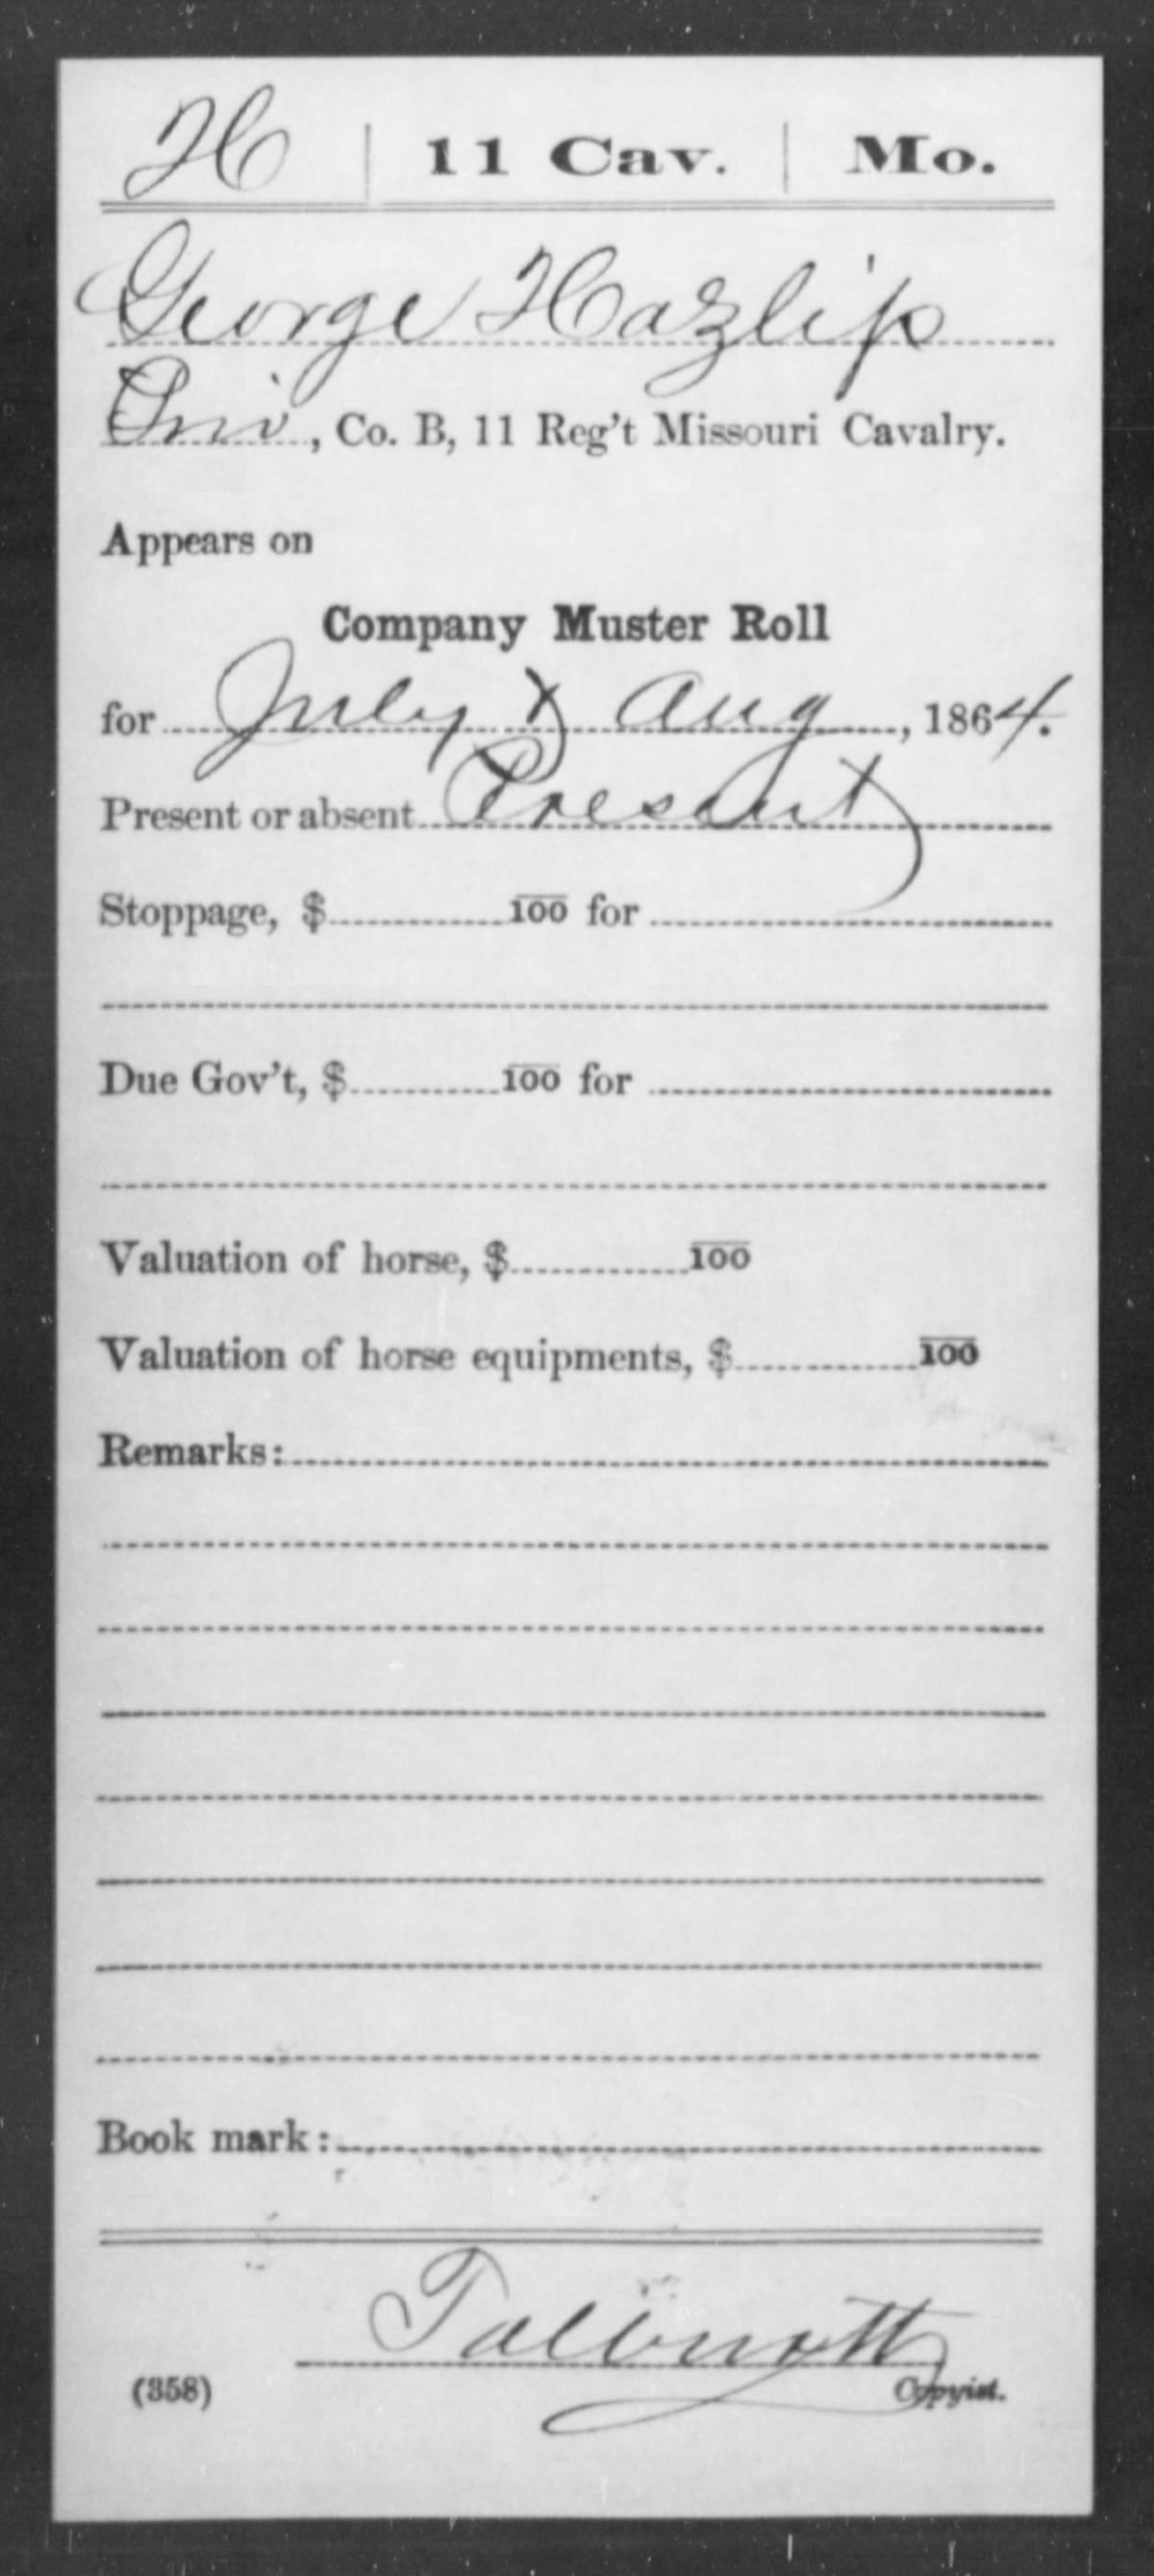 H | 11 Cav. | Mo.
George Hazlip
Priv, Co. B, 11 Reg't Missouri Cavalry.
Appears on
Company Muster Roll
for July & Aug, 1864.
Present or absent Present
Stoppage, $ 100 for
Due Gov't, $ 100 for
Valuation of horse, $ 100
Valuation of horse equipments, $ 100
Remarks:
Book mark:
(358) Copyist.